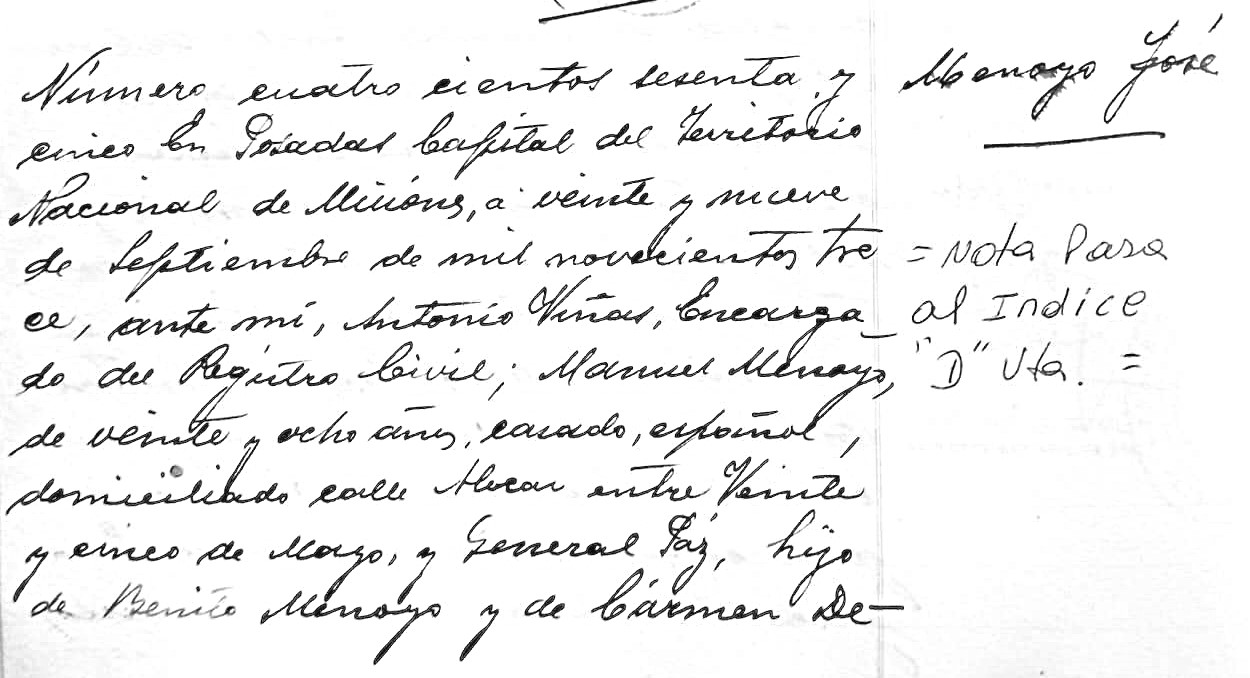 Número cuatro cientos sesenta y
cinco En Posadas Capital del Territorio
Nacional de Misiones, a veinte y nueve
de Septiembre de mil novecientos tre
ce, ante mí, Antonio Viñas, Encarga
do del Registro Civil; Manuel Menoyo,
de veinte y ocho años, casado, español,
domiciliado calle entre Veinte
y cinco de Mayo, y General Páz, hijo
de Benito Menoyo y de Cármen De-
Menoyo José
= Nota Pasa
al Indice
"D" Vta. =